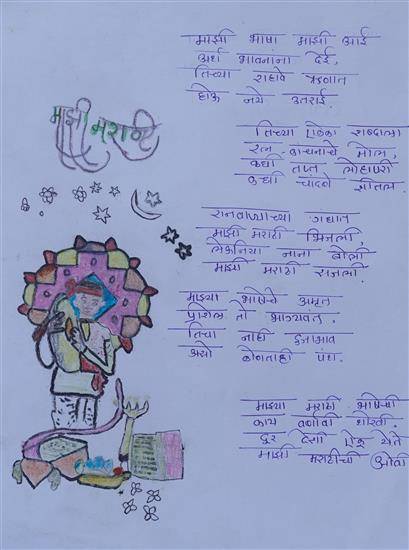 माझी मराठी
माझी भाषा माझी आई
अर्थ भावनांना देई,
तिच्या राहावे ऋणात
होऊ नये उतराई.
तिच्या एकेका शब्दाला
रत्न कांचनाचे मोल,
कधी तप्त लोहापरी
कधी चांदणे शीतल.
रानवाऱ्याच्या गंधात
माझी मराठी भिजली,
लेऊनिया नाना बोली
माझी मराठी सजली.
माझ्या भाषेचे अमृत
प्राशिल तो भाग्यवंत.
तिचा नाही दुजाभाव
असो कोणताही पंथ.
माझ्या मराठी भाषेची
काय वर्णावी थोरवी.
दूर देशी ऐकू येते
माझी मराठीची ओवी